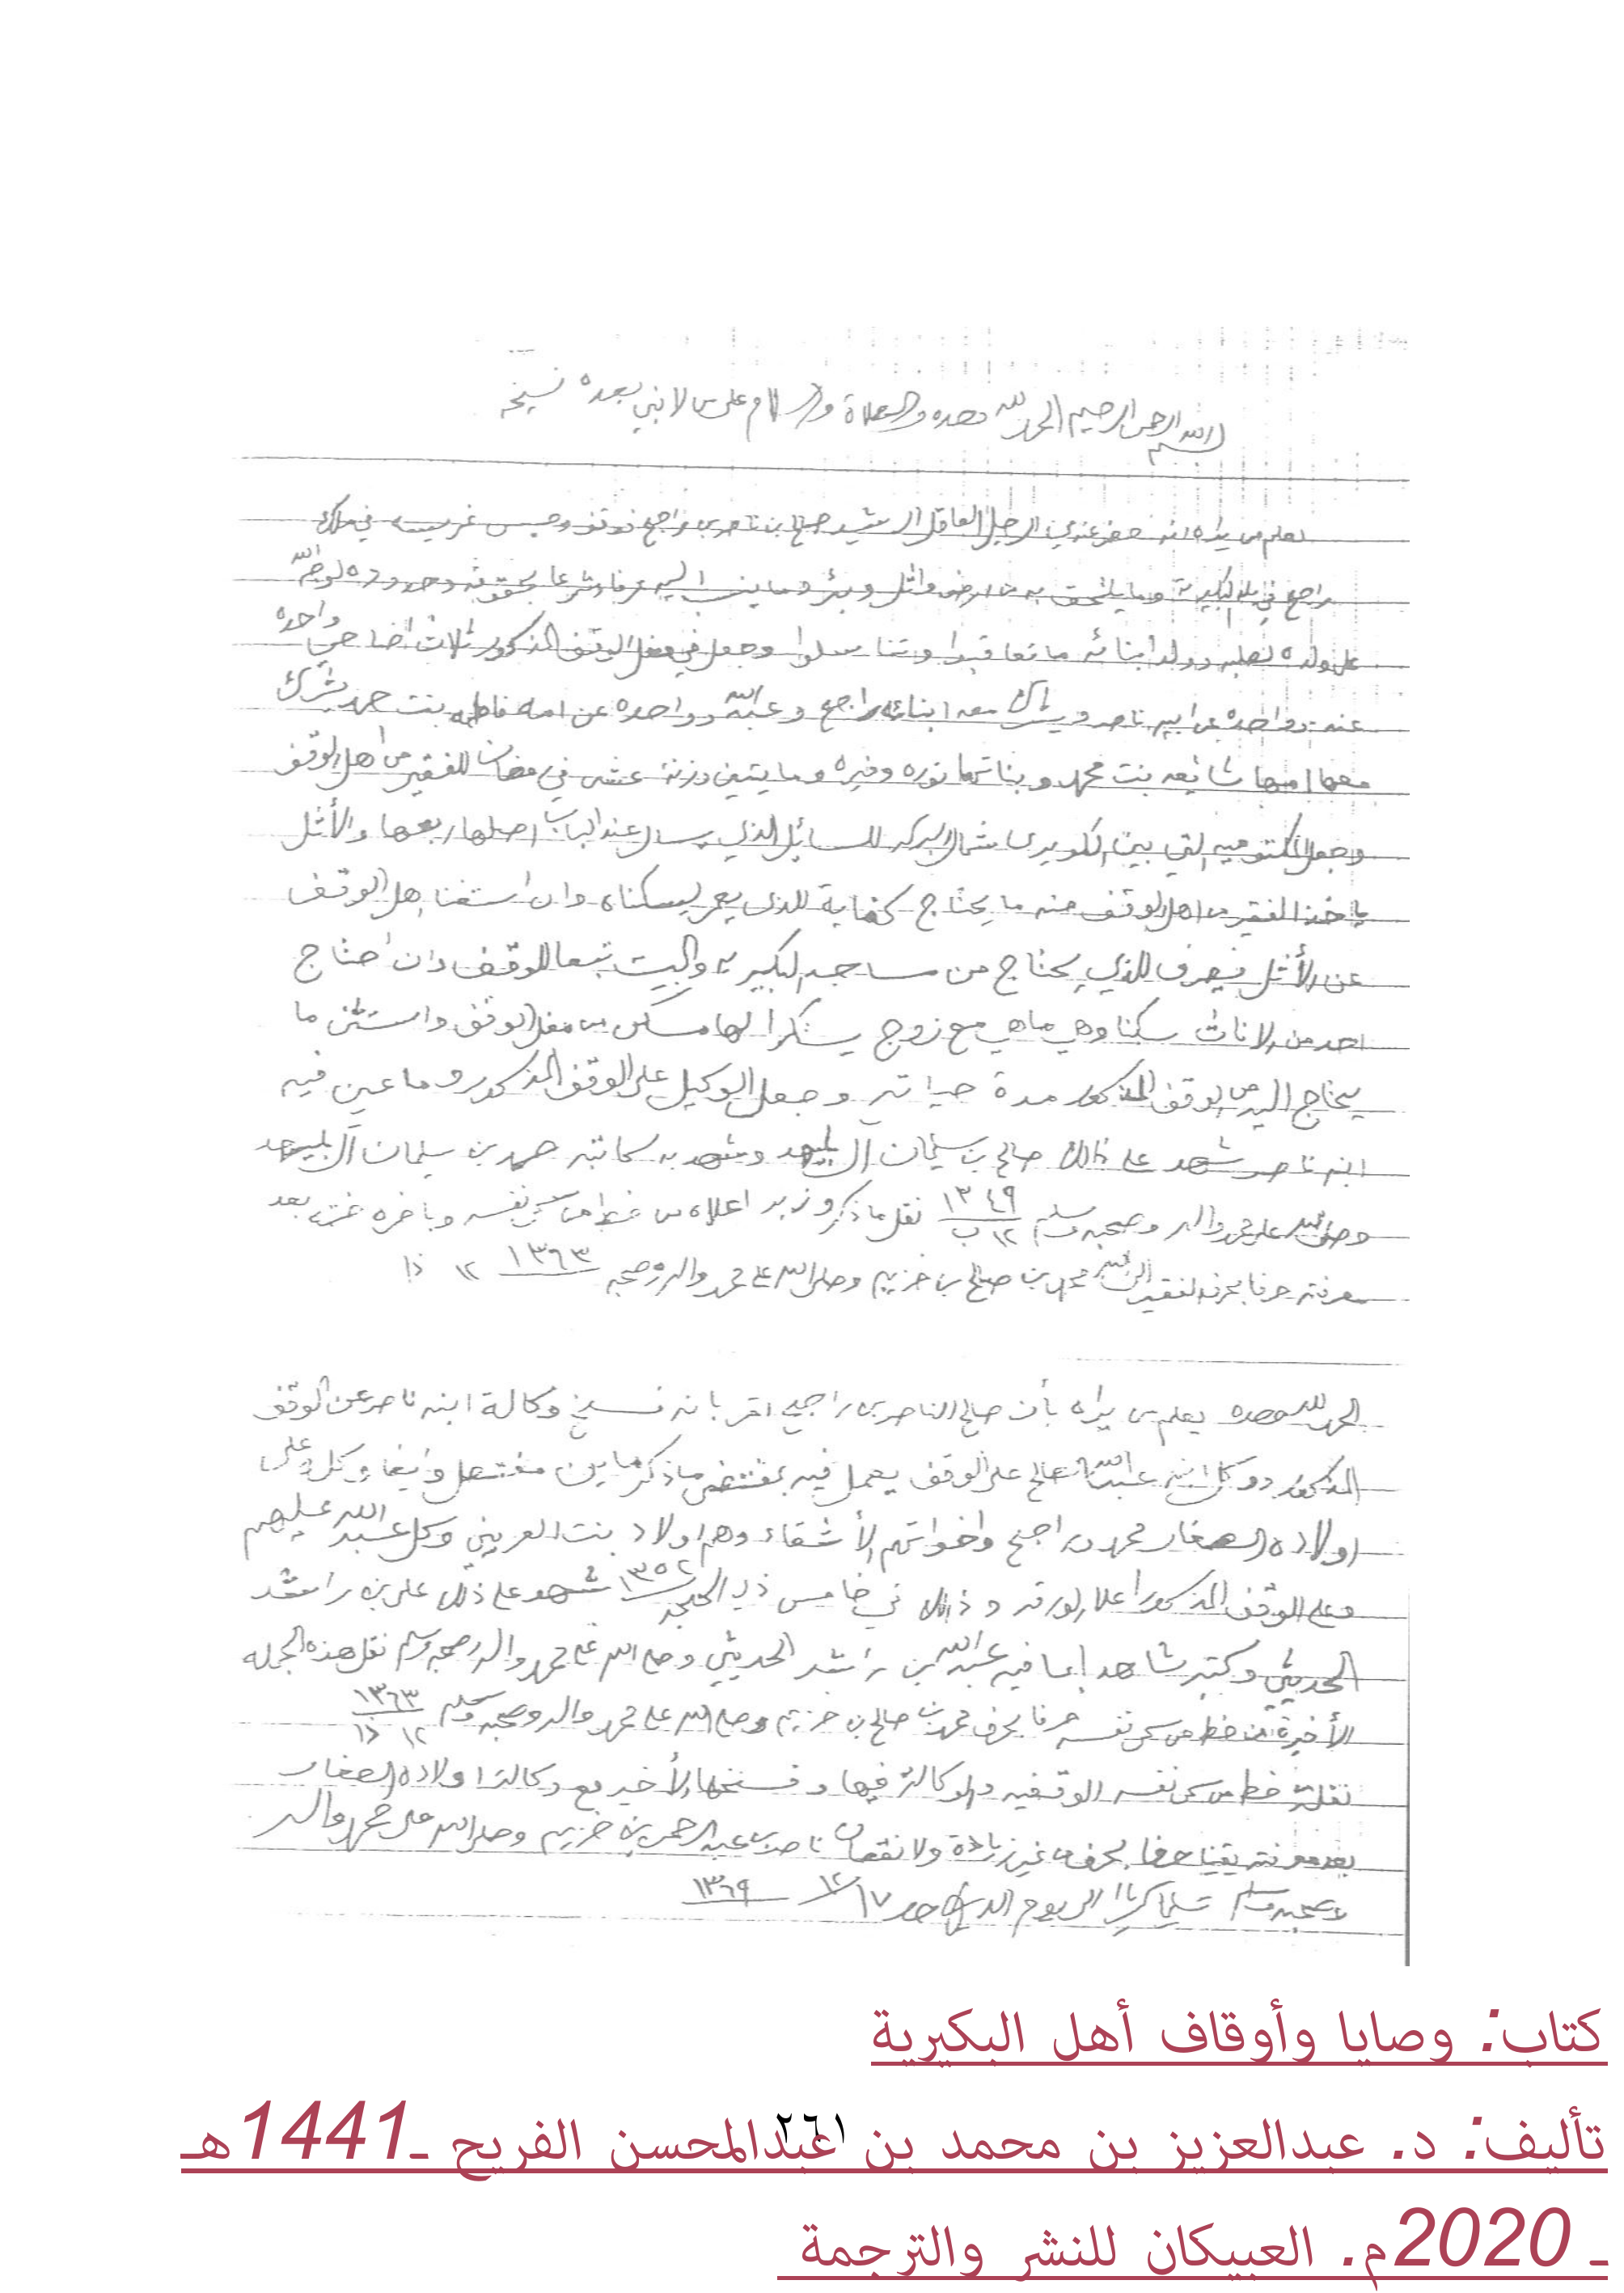 بسم الله الرحمن الرحيم الحمد لله وحده والصلاة والسلام على من لا نبي بعده
يعلم من يراه انه حضر عندي الرجل العاقل الرشيد صالح بن ناصر بن راجح فوقف وحبس غريسه في ملك
راجح في بلد البكيرية وما يلتحق به من ارض واثل وبئر وما ينسب اليه عرفا وشرعا بحقوقه وحدوده لوجه الله
على ولده لصلبه وولد ابنائه ما تعاقبوا وتناسلوا وجعل في مغل الوقف المذكور ثلاث اضاحي واحده
عنه وواحده عن ابيه ناصر ويشرك معه ابنائه راجح وعبدالله وواحده عن امه فاطمه بنت حمد يشرك
معها امها شايعه بنت محمد وبناتها نوره و وما يتين وزنة عشى في رمضان للفقير من اهل الوقف
وجعل المكتوميه التي بين شمال البركه للسائل الذي يسال عند الباب اصلها ربعها والأثل
ياخذ الفقير من اهل الوقف منه ما يحتاج كفاية للذي يعمر لسكناه وان استغنا اهل الوقف
عن الأثل فيصرف للذي يحتاج من مساجد البكيريه والبيت تبعا للوقف وان احتاج
احد من الاناث سكنا وهي ماهي مع زوج يستكرا لها مسكن من مغل الوقف واستثنى ما
يحتاج اليه من الوقف المذكور مدة حياته وجعل الوكيل على الوقف المذكور وما عين فيه
ابنه ناصر شهد على ذالك صالح بن سليمان آل بليهد وشهد به كاتبه حمد بن سليمان آل بليهد
وصلى الله على محمد واله وصحبه وسلم ١٣٤٩ ١٢ ب نقل ما ذكر وزبر اعلاه من خط من سمى نفسه وباخره ختمه بعد
معرفته حرفا بحرف الفقير الى الله محمد بن صالح بن خزيم وصلى الله على محمد واله وصحبه ١٣٦٣ ١٢ ذا
الحمد لله وحده يعلم من يراه بأن صالح الناصر بن راجح اقر بانه فسخ وكالة ابنه ناصر عن الوقف
المذكور ووكل ابنه عبدالله الصالح على الوقف يعمل فيه بمقتضى ما ذكر وايضا وكل على
اولاده الصغار محمد وراجح واخواتهم الأشقاء وهم اولاد بنت العريني وكل عبدالله عليهم
وعلى الوقف المذكور اعلا الورقه وذالك في خامس ذي الحجه ١٣٥٢ شهد على ذلك علي بن راشد
الحديثي وكتبه شاهد بما فيه عبدالله بن راشد الحديثي وصلى الله على محمد واله وصحبه وسلم نقل هذه الجمله
الأخيرة من خط من سمى نفسه حرفا بحرف محمد بن صالح بن خزيم وصلى الله على محمد واله وصحبه وسلم ١٣٦٣ ١٢ ذا
نقلته من خط من سمى نفسه الوقفيه والوكالة فيها وفسخها الأخير مع وكالة اولاده الصغار
بعد معرفته يقينا حرفا بحرف من غير زيادة ولا نقصان ناصر بن عبدالرحمن بن خزيم وصلى الله على محمد واله
وصحبه وسلم تسليما كثيرا الى يوم الدين ١٧ ١٢ ١٣٦٩
كتاب: وصايا وأوقاف أهل البكيرية
٢٦١
تأليف: د. عبدالعزيز بن محمد بن عبدالمحسن الفريح ـ1441هـ
ـ 2020م. العبيكان للنشر والترجمة